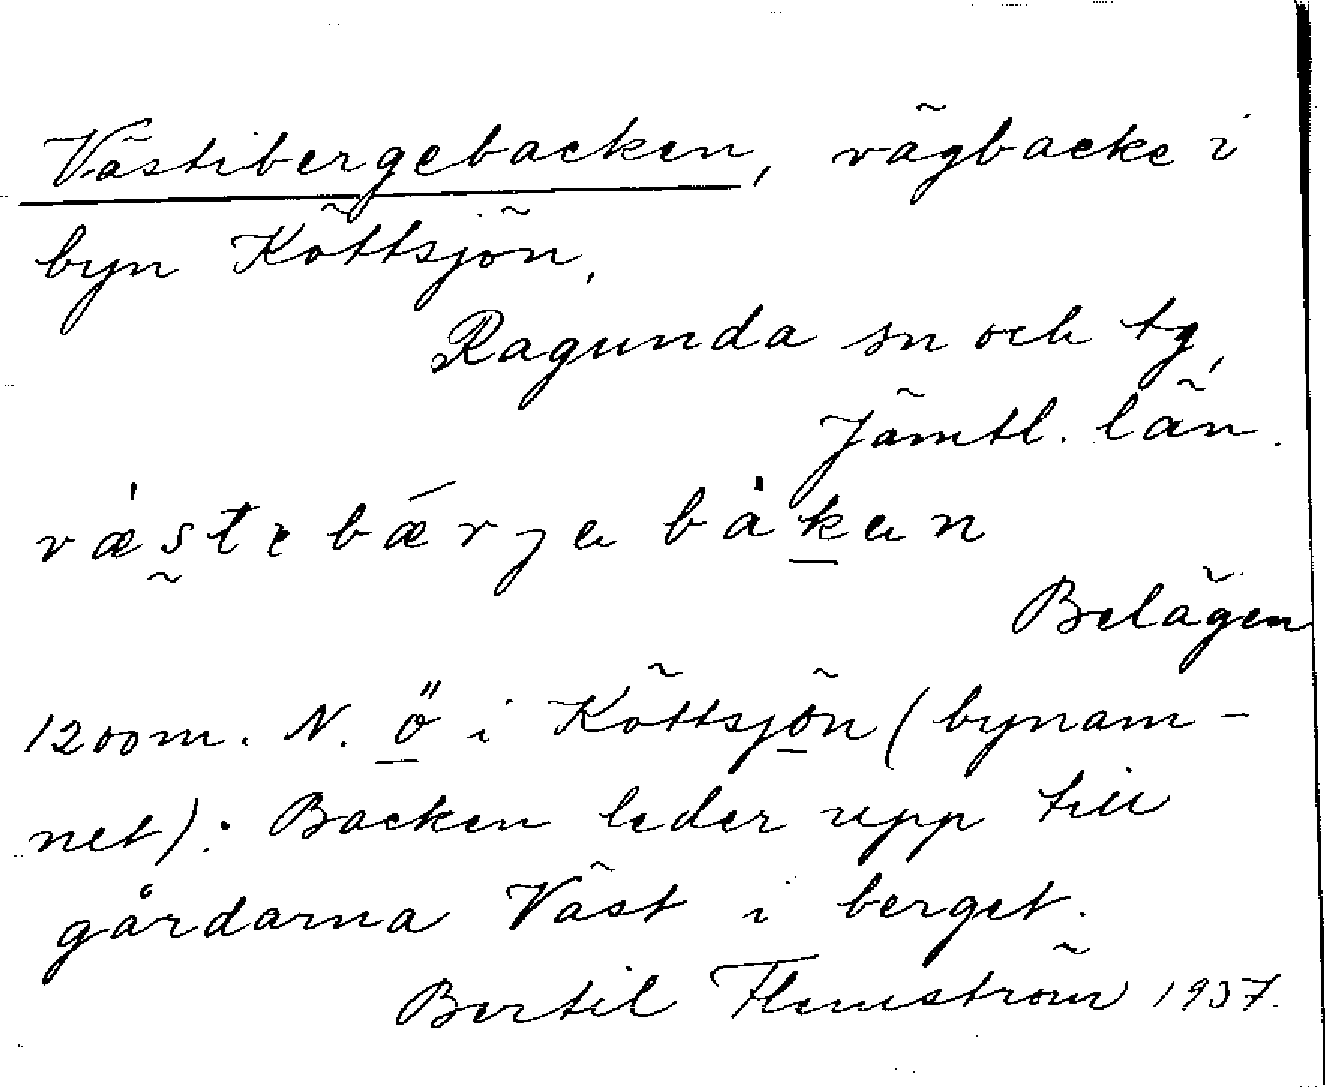 Västibergebacken, vägbacke i
byn Köttsjön,
Ragunda sn och tg,
Jämtl. län.
Belägen
1200 m. N. ö i Köttsjön (bynam-
net). Backen leder upp till
gårdarna Väst i berget.
Bertil Flemström 1937.